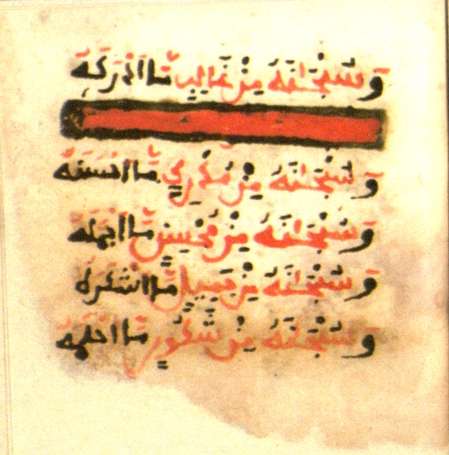 وَسُبْحَنَهُ مِنْ غَالِبٍ مَّا اَدْرَكَهُ
وَسُبْحَنَهُ مِنْ مُدْرِكٍ مَّا احْسَنَهُ
وَسُبْحَنَهُ مِنْ مُحْسِنٍ مَّا اجْمَلَهُ
وَسُبْحَنَهُ مِنْ جَمِيلٍ مَّا اشْكَرَهُ
وَسُبْحَنَهُ مِنْ شَكُورٍ مَّا احْلَمَهُ